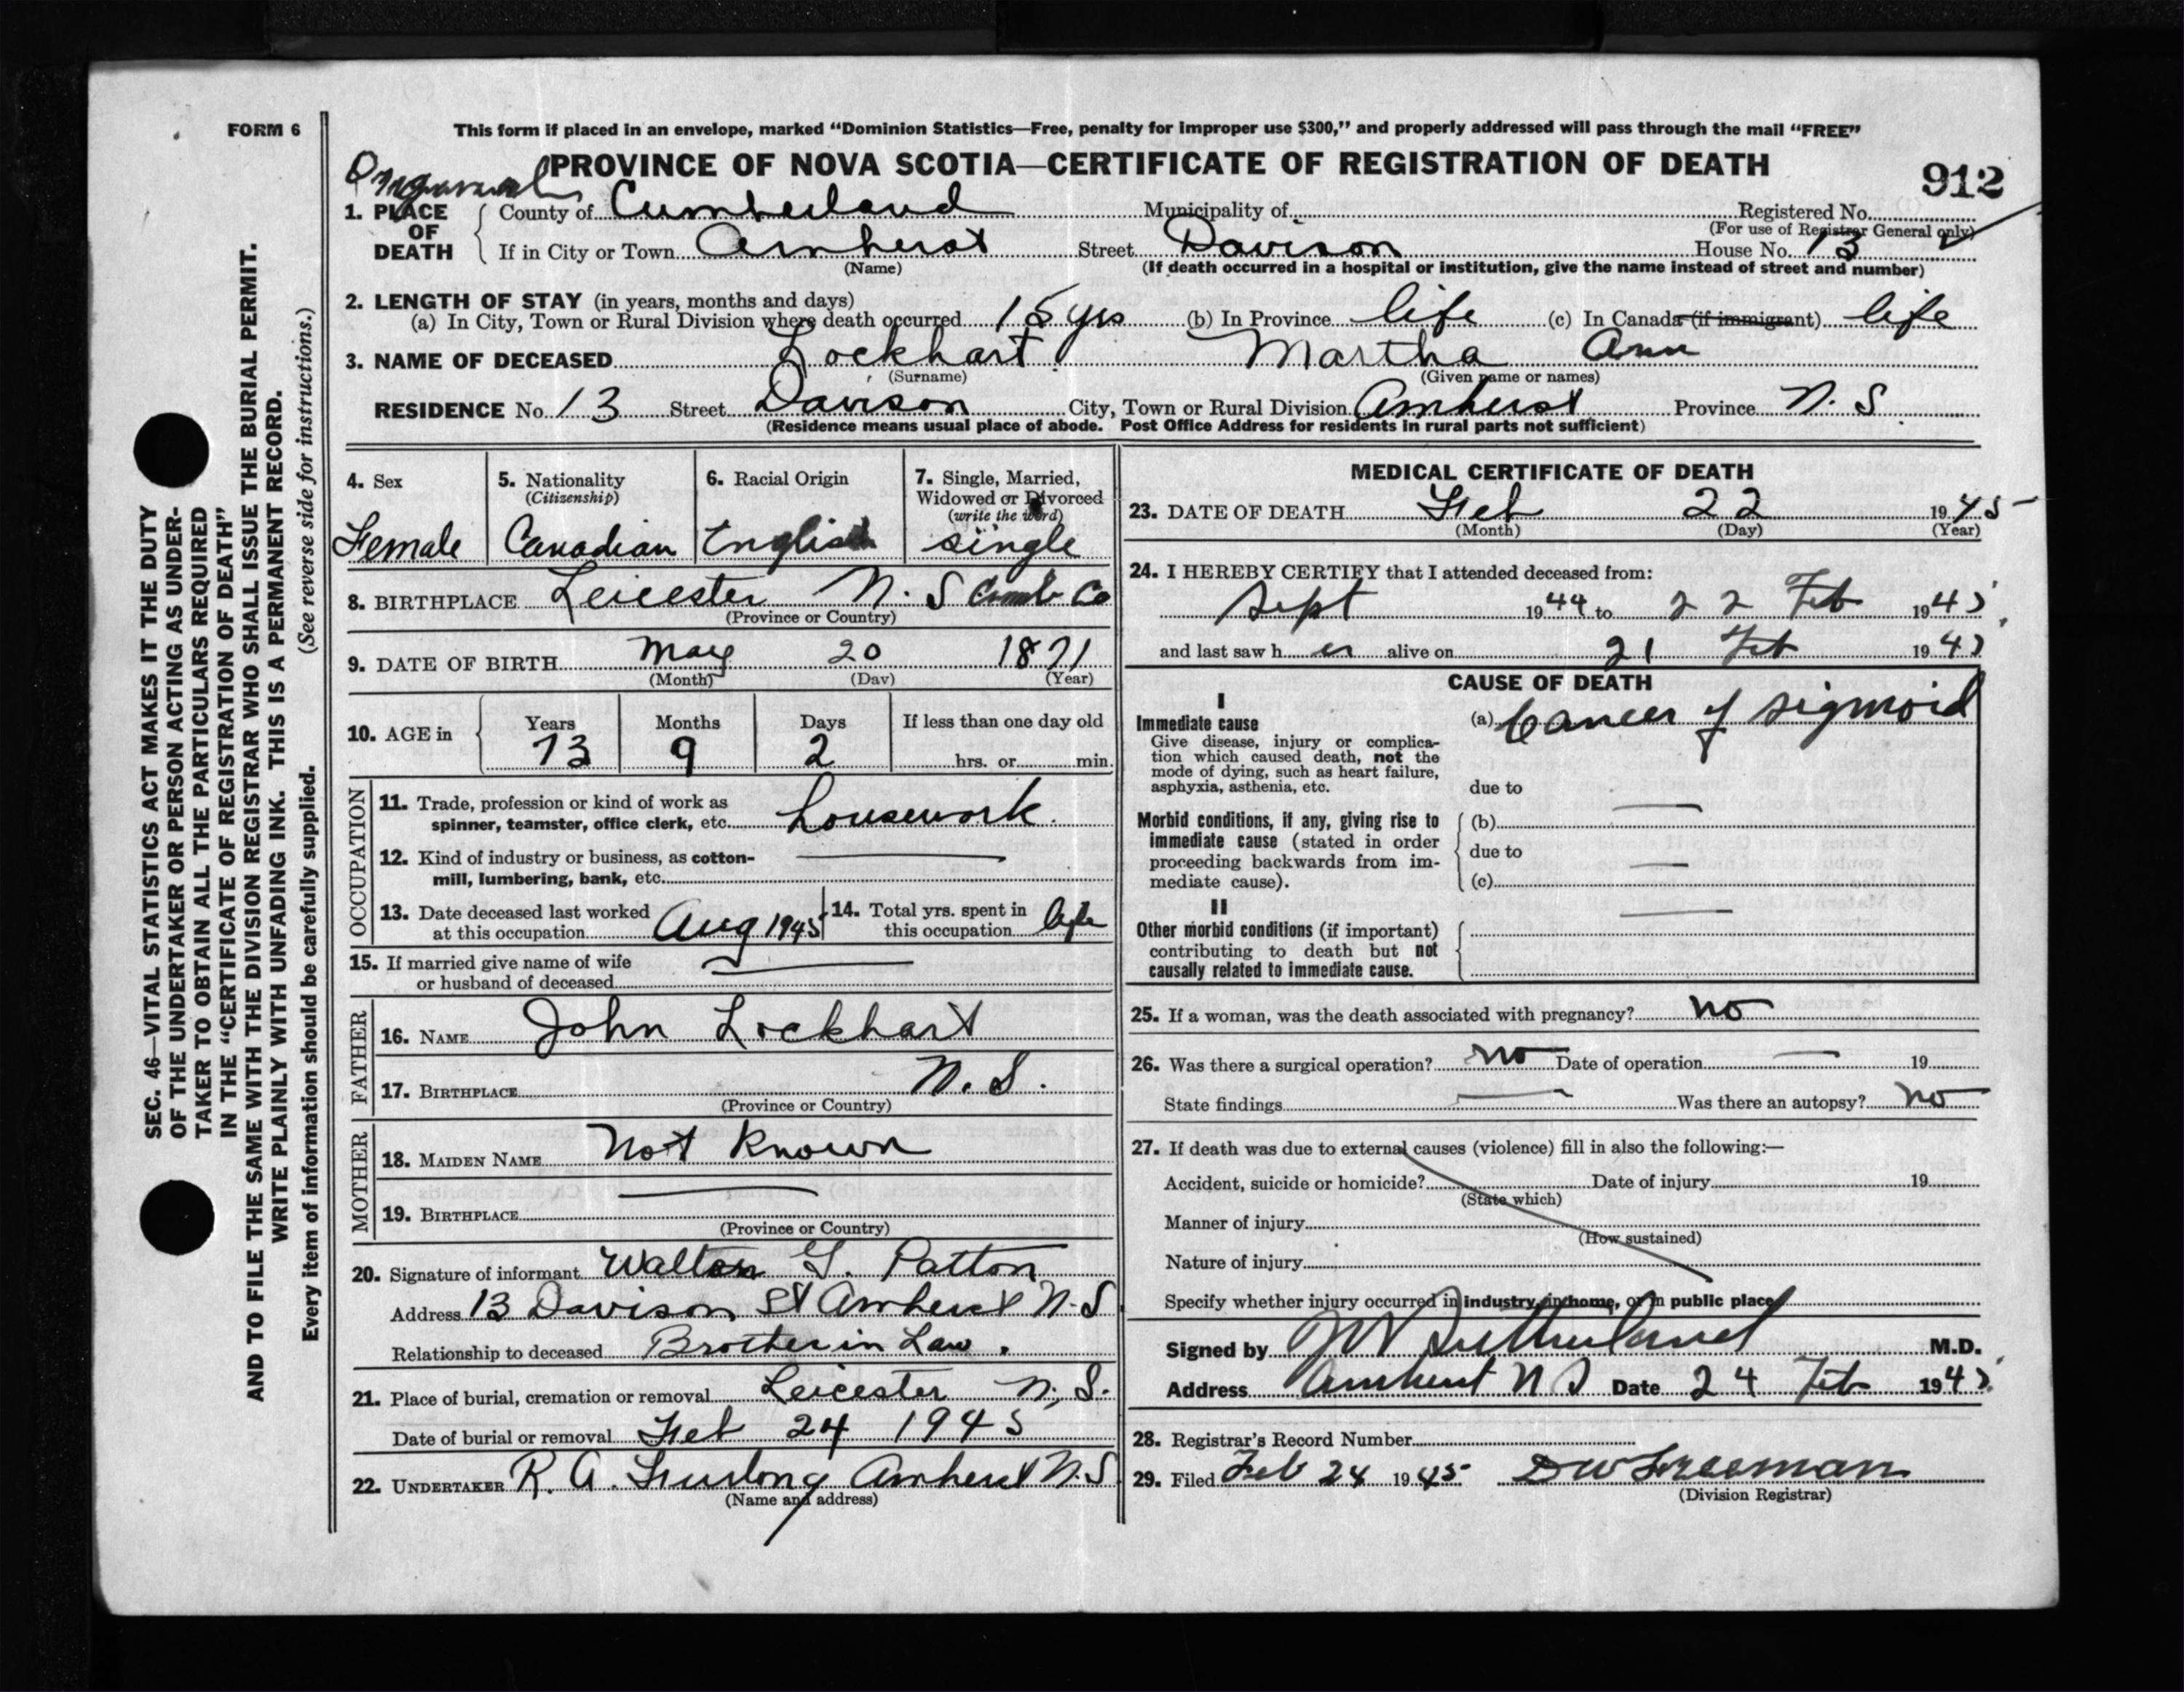 FORM 6
This form if placed in an envelope, marked "Dominion Statistics—Free, penalty for improper use $300," and properly addressed will pass through the mail "FREE"
PROVINCE OF NOVA SCOTIA—CERTIFICATE OF REGISTRATION OF DEATH
912
1. PLACE OF DEATH County of Cumberland Municipality of Registered No.
(For use of Registrar General only)
If in City or Town Amherst Street Davison House No. 13
(Name) (If death occurred in a hospital or institution, give the name instead of street and number)
2. LENGTH OF STAY (in years, months and days)
(a) In City, Town or Rural Division where death occurred 15 yrs (b) In Province life (c) In Canada (if immigrant) life
3. NAME OF DECEASED Lockhart Martha Ann
(Surname) (Given name or names)
RESIDENCE No. 13 Street Davison City, Town or Rural Division Amherst Province N. S
(Residence means usual place of abode. Post Office Address for residents in rural parts not sufficient)
4. Sex 5. Nationality (Citizenship) 6. Racial Origin 7. Single, Married, Widowed or Divorced (write the word)
Female Canadian English single
8. BIRTHPLACE Leicester N. S Cumb Co
(Province or Country)
9. DATE OF BIRTH May 20 1871
(Month) (Day) (Year)
10. AGE in Years Months Days If less than one day old
73 9 2 hrs. or min.
OCCUPATION
11. Trade, profession or kind of work as
spinner, teamster, office clerk, etc. housework.
12. Kind of industry or business, as cotton-
mill, lumbering, bank, etc.
13. Date deceased last worked at this occupation Aug 1945 14. Total yrs. spent in this occupation life
15. If married give name of wife
or husband of deceased
FATHER
16. NAME John Lockhart
17. BIRTHPLACE N. S.
(Province or Country)
MOTHER
18. MAIDEN NAME Not Known
19. BIRTHPLACE
(Province or Country)
20. Signature of informant Walton G. Patton
Address 13 Davison St Amherst N-S
Relationship to deceased Brother in Law.
21. Place of burial, cremation or removal Leicester N. S.
Date of burial or removal Feb 24 1945
22. UNDERTAKER R. A. Furlong Amherst N.S
(Name and address)
MEDICAL CERTIFICATE OF DEATH
23. DATE OF DEATH Feb 22 1945
(Month) (Day) (Year)
24. I HEREBY CERTIFY that I attended deceased from:
Sept 1944 to 22 Feb 1945
and last saw h er alive on 21 Feb 1945
CAUSE OF DEATH
I
Immediate cause (a) Cancer of sigmoid
Give disease, injury or complica-
tion which caused death, not the
mode of dying, such as heart failure,
asphyxia, asthenia, etc. due to
Morbid conditions, if any, giving rise to (b)
immediate cause (stated in order
proceeding backwards from im- due to
mediate cause). (c)
II
Other morbid conditions (if important)
contributing to death but not
causally related to immediate cause.
25. If a woman, was the death associated with pregnancy? no
26. Was there a surgical operation? no Date of operation 19
State findings Was there an autopsy? no
27. If death was due to external causes (violence) fill in also the following:—
Accident, suicide or homicide? Date of injury 19
(State which)
Manner of injury
(How sustained)
Nature of injury
Specify whether injury occurred in industry, in home, or in public place
Signed by Sutherland M.D.
Address Amherst N S Date 24 Feb 1945
28. Registrar's Record Number
29. Filed Feb 24 1945 D W Freeman
(Division Registrar)
SEC. 46—VITAL STATISTICS ACT MAKES IT THE DUTY
OF THE UNDERTAKER OR PERSON ACTING AS UNDER-
TAKER TO OBTAIN ALL THE PARTICULARS REQUIRED
IN THE "CERTIFICATE OF REGISTRATION OF DEATH"
AND TO FILE THE SAME WITH THE DIVISION REGISTRAR WHO SHALL ISSUE THE BURIAL PERMIT.
WRITE PLAINLY WITH UNFADING INK. THIS IS A PERMANENT RECORD.
Every item of information should be carefully supplied. (See reverse side for instructions.)